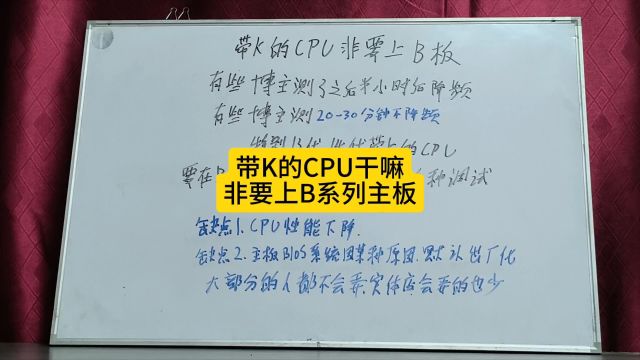 带K的CPU非要上B板
有些博主测了之后半小时后降频
有些博主测20-30分钟不降频
带K的CPU干嘛
非要上B系列主板
要在
种调试
缺点1.CPU性能下降.
缺点2.主板BIOS系统因某种原因.默认出厂化
大部分的人都不会弄.实体店会弄的也少